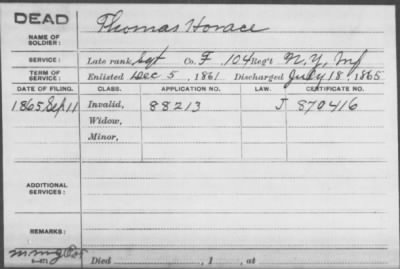 DEAD
NAME OF SOLDIER: Thomas Horace
SERVICE: Late rank, Sgt Co. F, 104 Reg't N.Y. Inf
TERM OF SERVICE: Enlisted Dec 5, 1861. Discharged July 18, 1865
DATE OF FILING. CLASS. APPLICATION NO. LAW. CERTIFICATE NO.
1865 Sep 11 Invalid, 88213 J 870416
Widow,
Minor,
ADDITIONAL SERVICES:
REMARKS:
Died , 1 , at